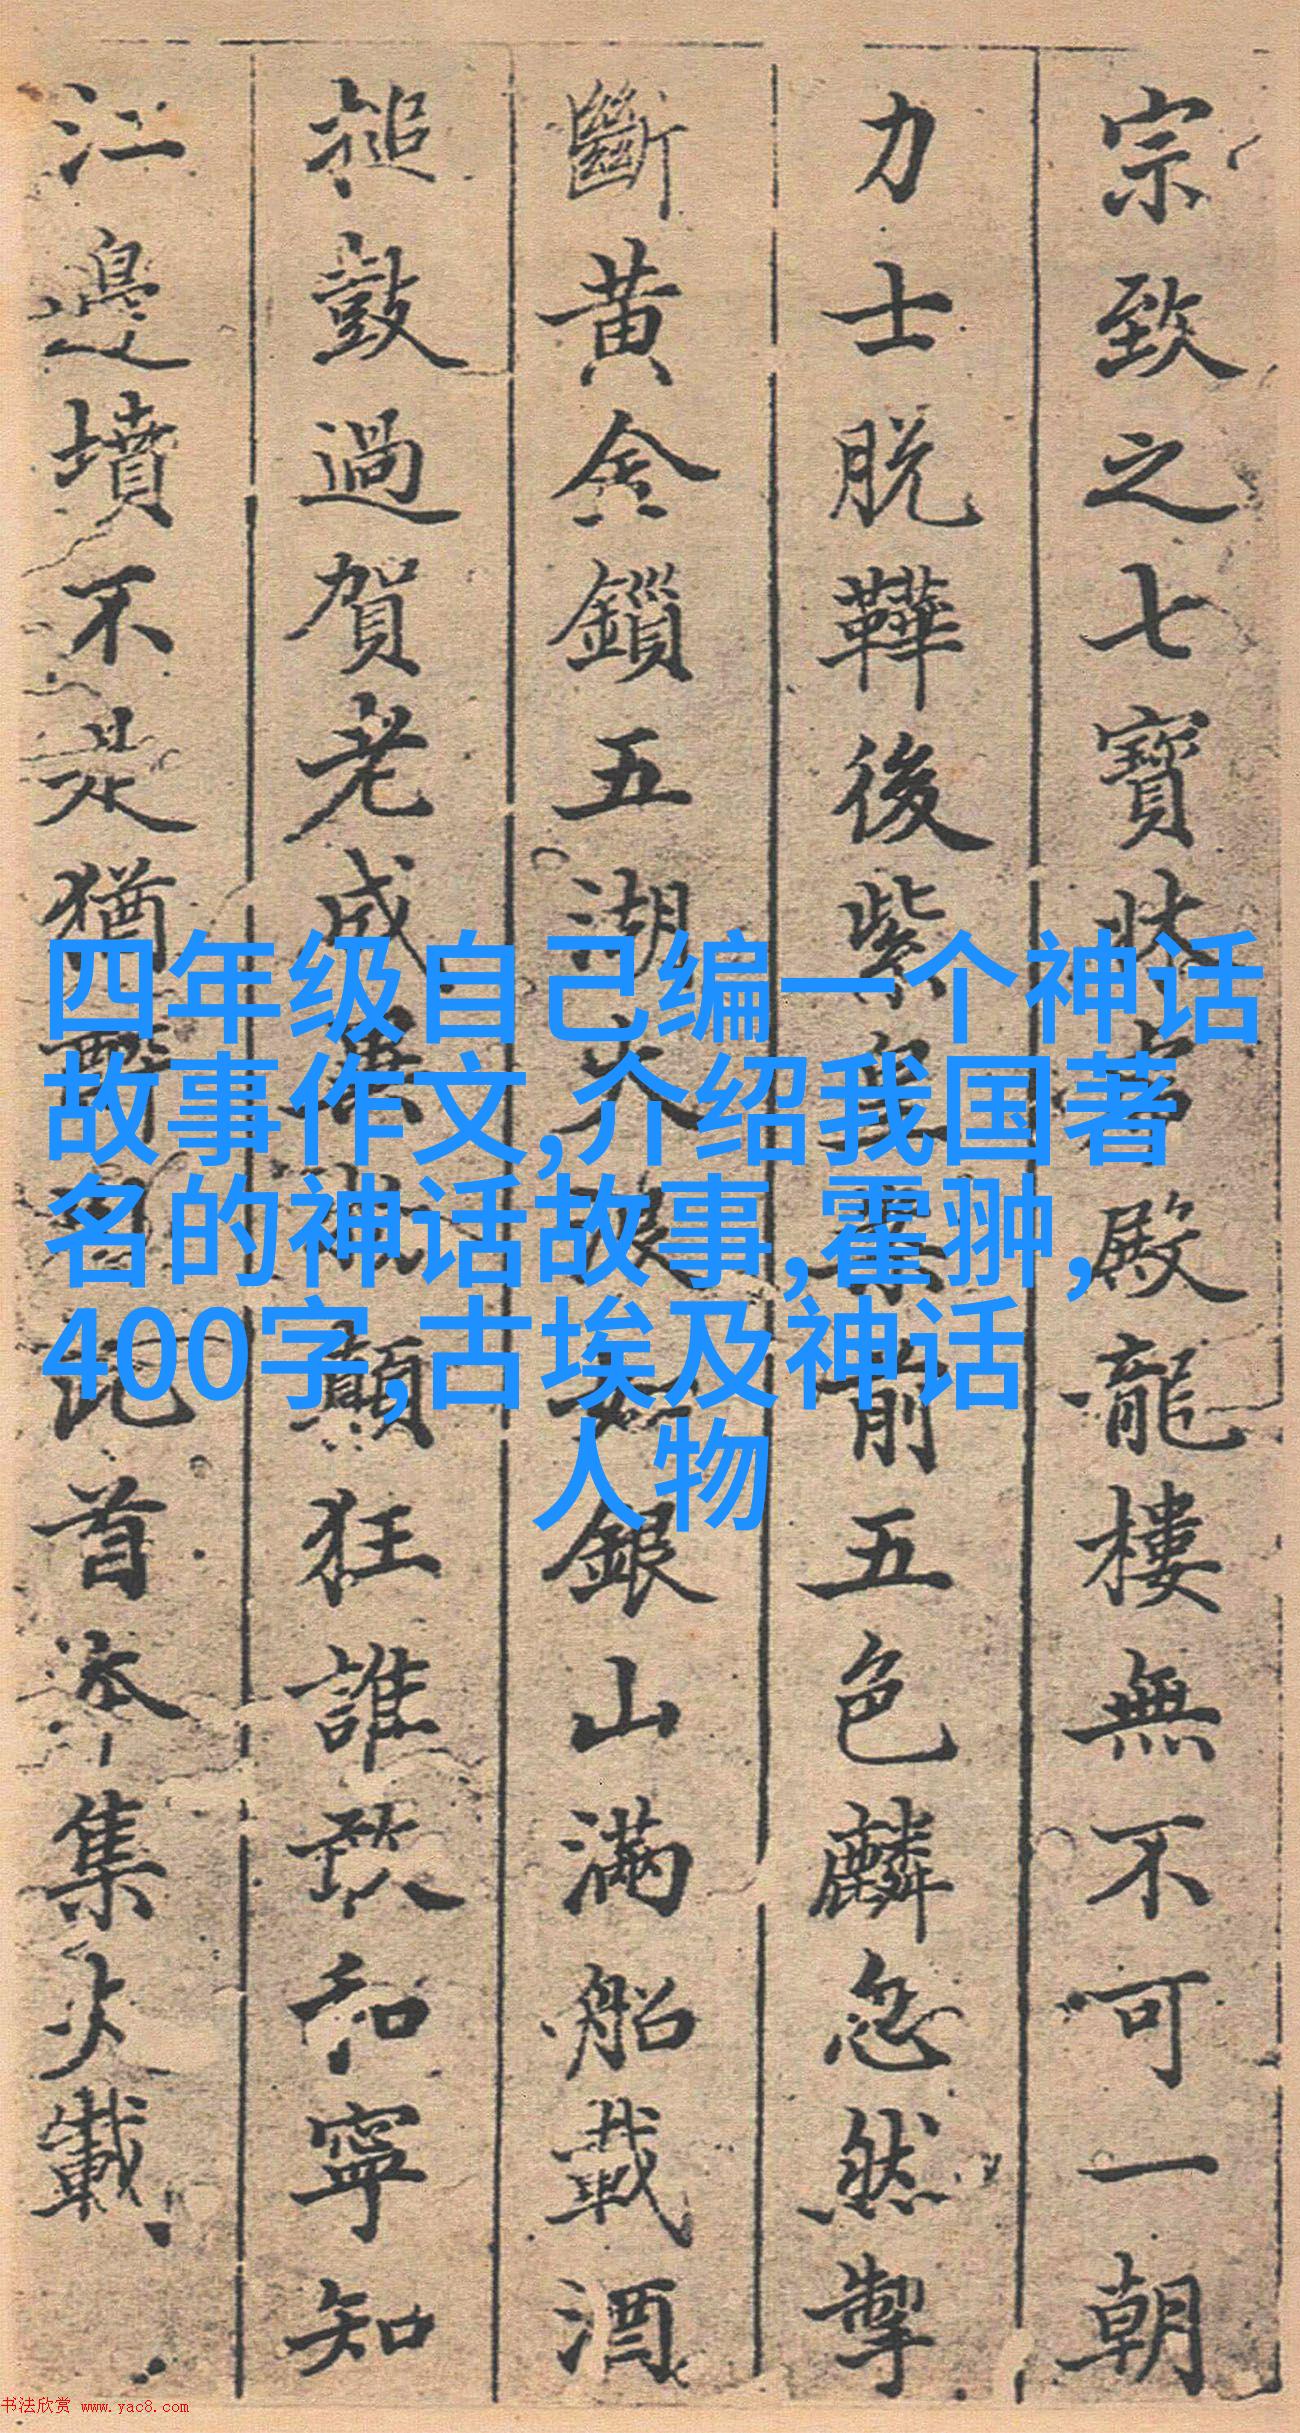 宗致之七寶牀殿龍樓無不可一朝
力士脫鞾後紫皇案前五色麟忽然掣
斷黃金鎖五湖大浪如銀山滿船載酒
搥鼓過賀老成異物顛狂誰敢和寧知
江邊墳不是猶醉臥此首本集失載
四年级自己编一个神话
故事作文,介绍我国著
名的神话故事,霍翀,
400字,古埃及神话
人物
书法欣赏 www.yac8.com